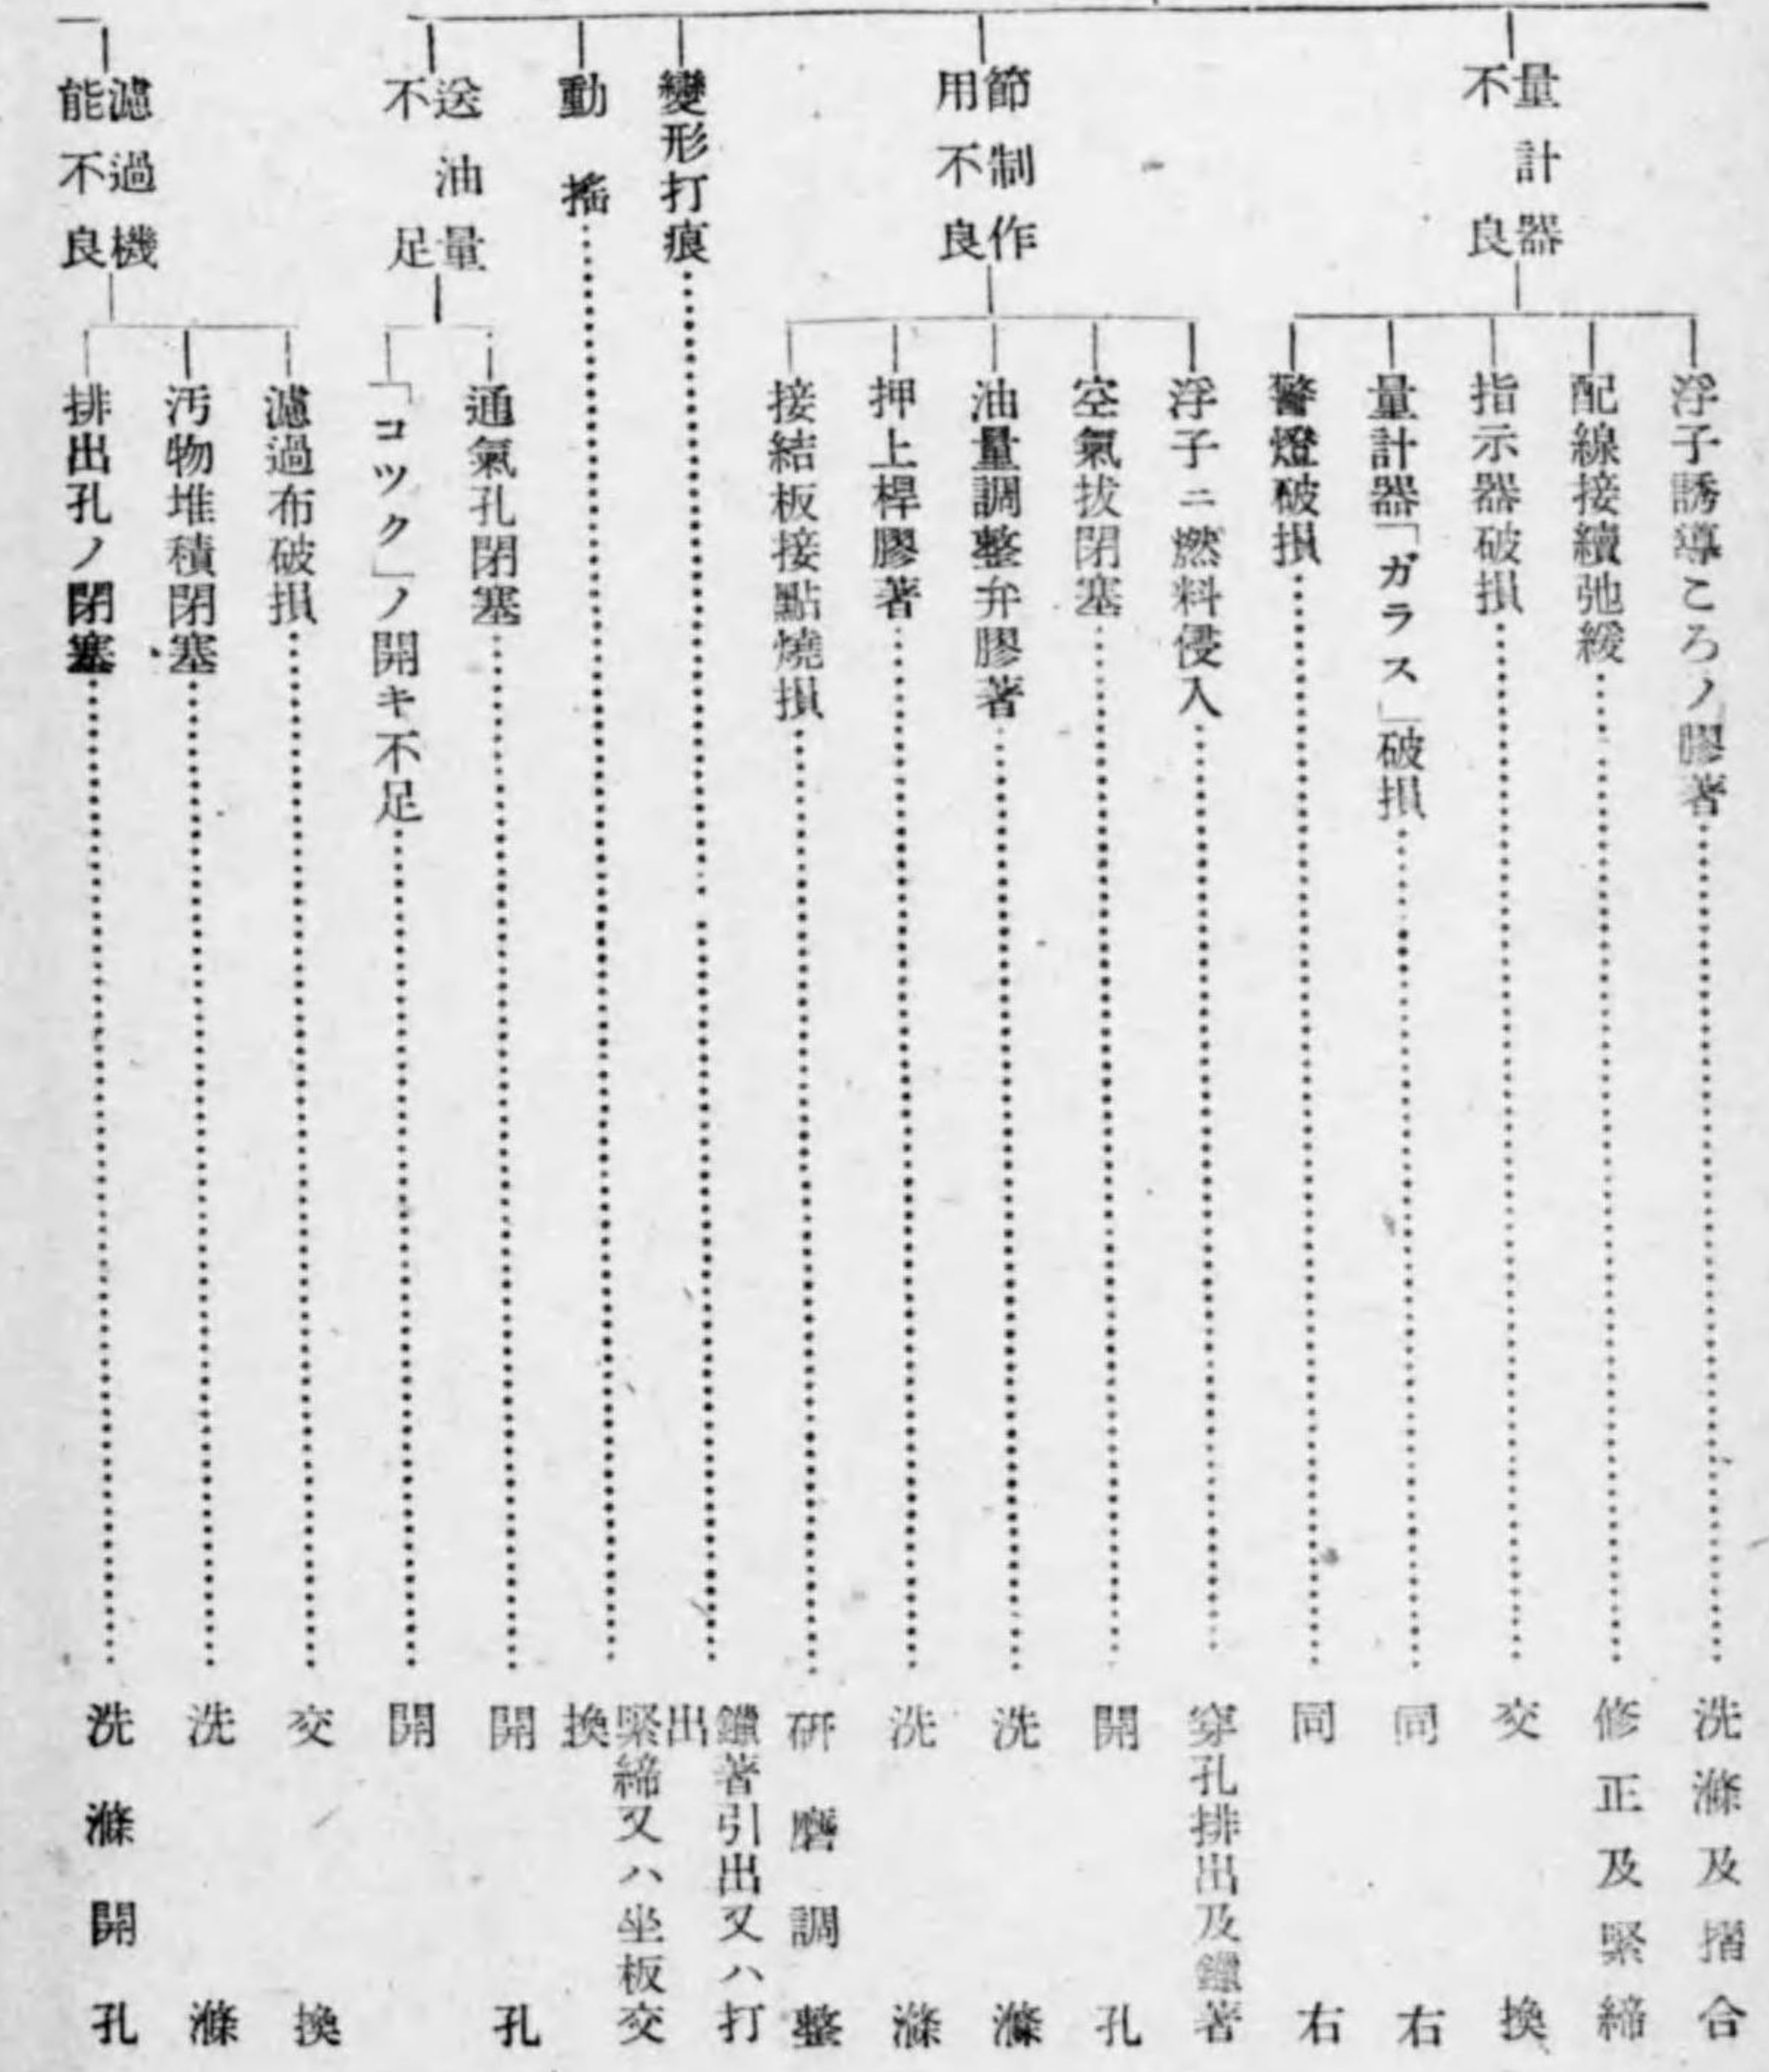 量計器不良
浮子誘導ころノ膠著……洗滌及摺合
配線接續弛緩……修正及緊締
指示器破損……交換
量計器「ガラス」破損……同右
警燈破損……同右
節制作用不良
浮子ニ燃料侵入……穿孔排出及鑞著
空氣拔閉塞……開孔
油量調整弁膠著……洗滌
押上桿膠著……洗滌
接結板接點燒損……研磨調整
變形打痕……鑞著引出又ハ打出
動搖……緊締又ハ坐板交換
送油量不足
通氣孔閉塞……開孔
「コツク」ノ開キ不足……開
濾過機能不良
濾過布破損……交換
汚物堆積閉塞……洗滌
排出孔ノ閉塞……洗滌開孔